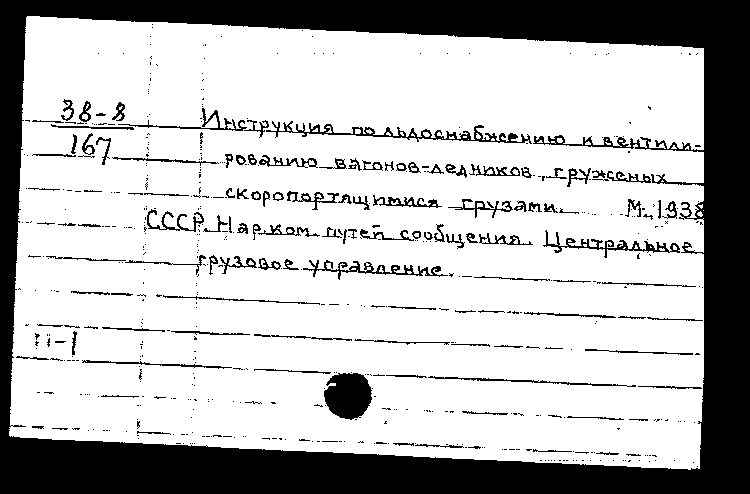 38-8
167
Инструкция по льдоснабжению и вентили-
рованию вагонов-ледников, груженых
скоропортящимися грузами. М. 1938
СССР. Нар.ком. путей сообщения. Центральное
грузовое управление.